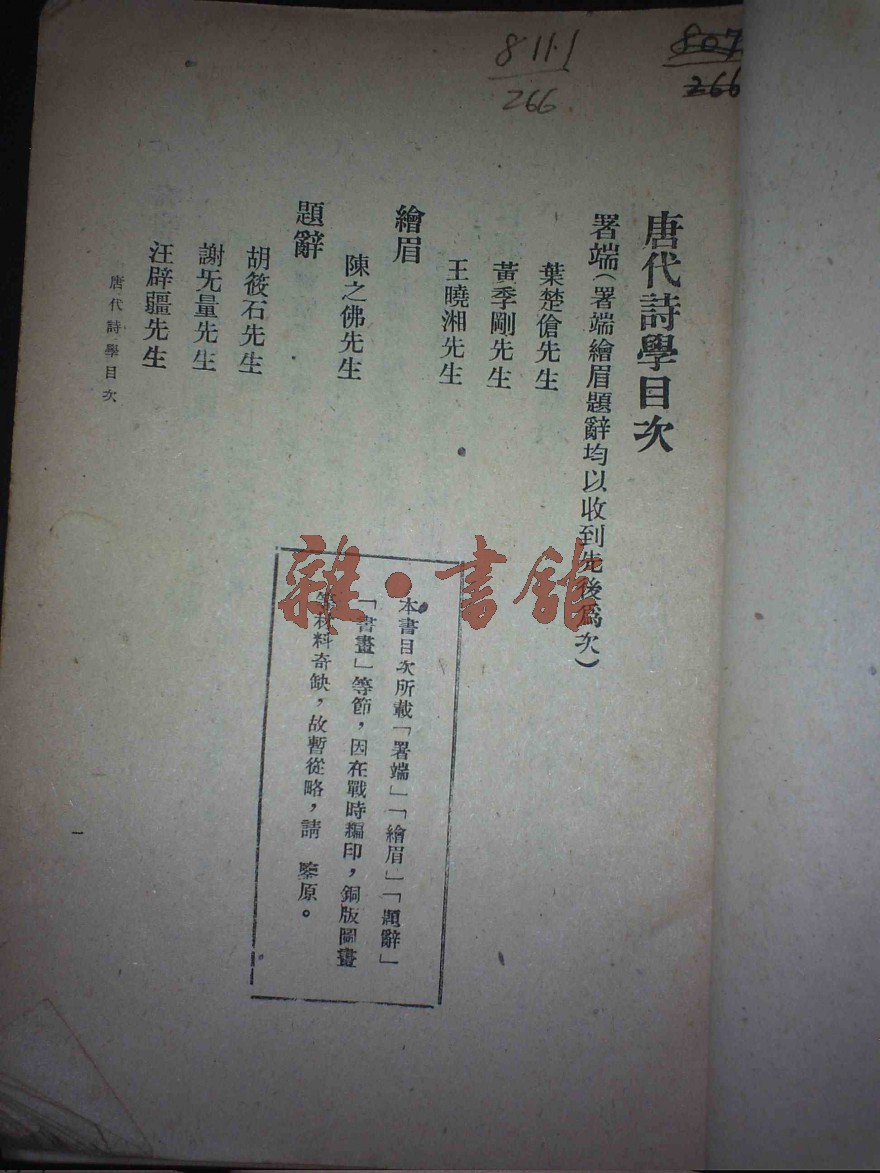 唐代詩學目次
署端(署端繪眉題辭均以收到先後爲次)
葉楚傖先生
黃季剛先生
王曉湘先生
繪眉
陳之佛先生
題辭
胡筱石先生
謝无量先生
汪辟疆先生
本書目次所載「署端」「繪眉」「題辭」
「書畫」等節,因在戰時編印,銅版圖畫
等材料奇缺,故暫從略,請 鑒原。
唐代詩學目次
一
811.1
266
266
雜·書館